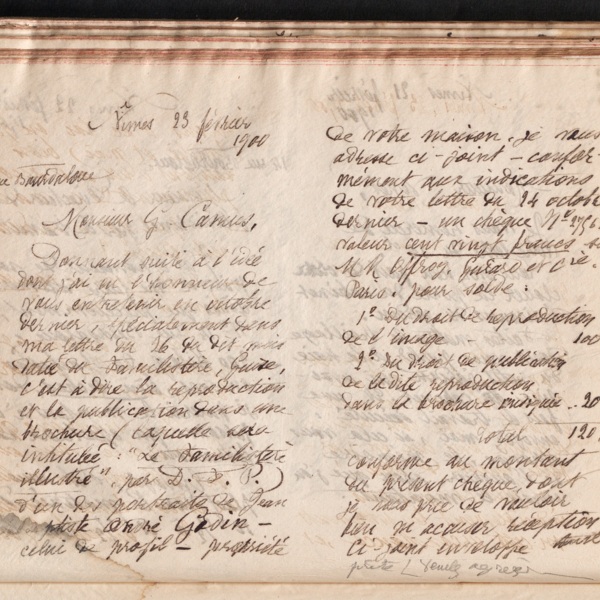 Nîmes 23 février
1900
Monsieur G. Camus,
Donnant suite à l'idée
dont j'ai eu l'honneur de
vous entretenir en octobre
dernier, spécialement dans
ma lettre du 26 du dit mois
datée du Familistère, Guise,
c'est à dire la reproduction
et la publication dans une
brochure (laquelle sera
intitulée : "Le Familistère
illustré", par D. F. P.)
d'un des portraits de Jean
Baptiste André Godin –
celui de profil – propriété
de votre maison, je vous
adresse ci-joint – confor-
mément aux indications
de votre lettre du 24 octobre
dernier – un chèque N°
valeur cent vingt francs
MM Offroy, Guiard et Cie
Paris, pour solde :
1° Du droit de reproduction
de l'image 100
2° Du droit de publication
de ladite reproduction
dans la brochure susdite .. 20
Total 120
conforme au montant
du présent chèque, dont
je vous prie de vouloir
bien m'accuser réception
ci-joint enveloppe
Veuillez agréer